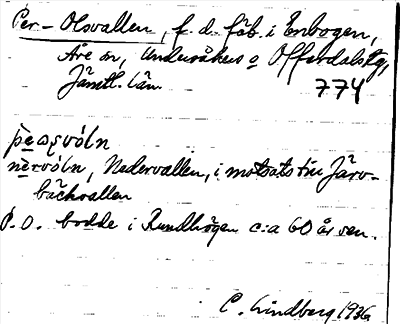 Per-Olsvallen, f. d. fäb. i Enbogen,
Åre sn, Undersåkers o Offerdals tg,
Jämtl. län. 774
nẹrvóln, Nedervallen, i motsats till Järv-
bäckvallen
P.O. bodde i Rundhögen c:a 60 år sen.
C. Lindberg 1936